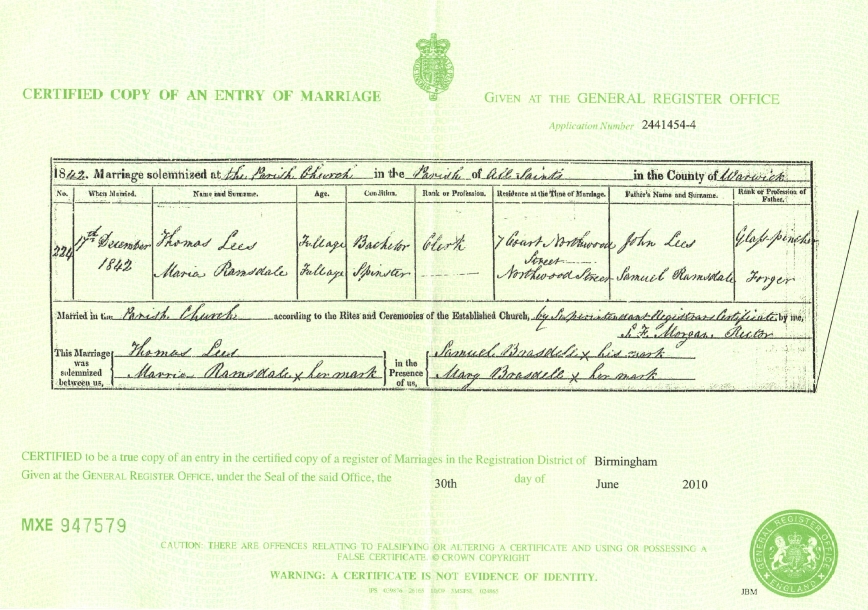 CERTIFIED COPY OF AN ENTRY OF MARRIAGE
GIVEN AT THE GENERAL REGISTER OFFICE
Application Number 2441454-4
1842. Marriage solemnized at the Parish Church in the Parish of All Saints in the County of Warwick
No. When Married. Name and Surname. Age. Condition. Rank or Profession. Residence at the Time of Marriage. Father's Name and Surname. Rank or Profession of Father.
224 17th December 1842
Thomas Lees Full age Bachelor Clerk 7 Court Northwood Street John Lees Glass-pincher
Maria Ramsdale Full age Spinster Northwood Street Samuel Ramsdale Forger
Married in the Parish Church according to the Rites and Ceremonies of the Established Church, by Superintendant Registrars Certificate by me,
Morgan Rector
This Marriage was solemnized between us,
Thomas Lees
Marria Ramsdale x her mark
in the Presence of us,
Samuel Brasdell x his mark
Mary Brasdell x her mark
CERTIFIED to be a true copy of an entry in the certified copy of a register of Marriages in the Registration District of Birmingham
Given at the GENERAL REGISTER OFFICE, under the Seal of the said Office, the 30th day of June 2010
MXE 947579
CAUTION: THERE ARE OFFENCES RELATING TO FALSIFYING OR ALTERING A CERTIFICATE AND USING OR POSSESSING A
FALSE CERTIFICATE. © CROWN COPYRIGHT
WARNING: A CERTIFICATE IS NOT EVIDENCE OF IDENTITY.
GENERAL REGISTER OFFICE
ENGLAND
JBM